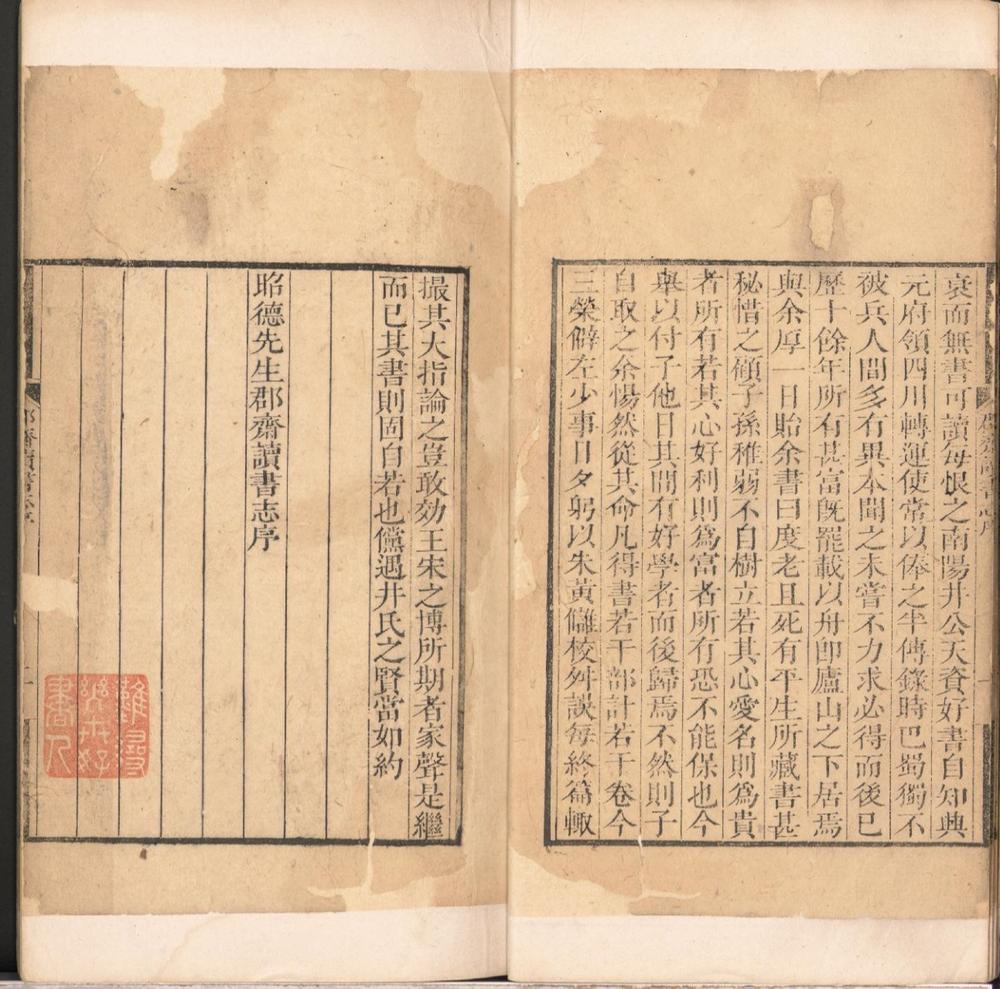 哀而無書可讀每恨之南陽井公天資好書自知興
元府領四川轉運使常以俸之半傳錄時巴蜀獨不
被兵人間多有異本聞之未嘗不力求必得而後已
歷十餘年所有甚富旣罷載以舟卽廬山之下居焉
與余厚一日貽余書曰度老且死有平生所藏書甚
秘惜之顧子孫稚弱不自樹立若其心愛名則爲貴
者所有若其心好利則爲富者所有恐不能保也今
舉以付子他日其間有好學者而後歸焉不然則子
自取之余惕然從其命凡得書若干部計若干卷今
三榮僻左少事日夕躬以朱黃讎校舛誤每終篇輒
撮其大指論之豈敢効王宋之博所期者家聲是繼
而已其書則固自若也儻遇井氏之賢當如約
昭德先生郡齋讀書志序
難尋
幾世好
書人